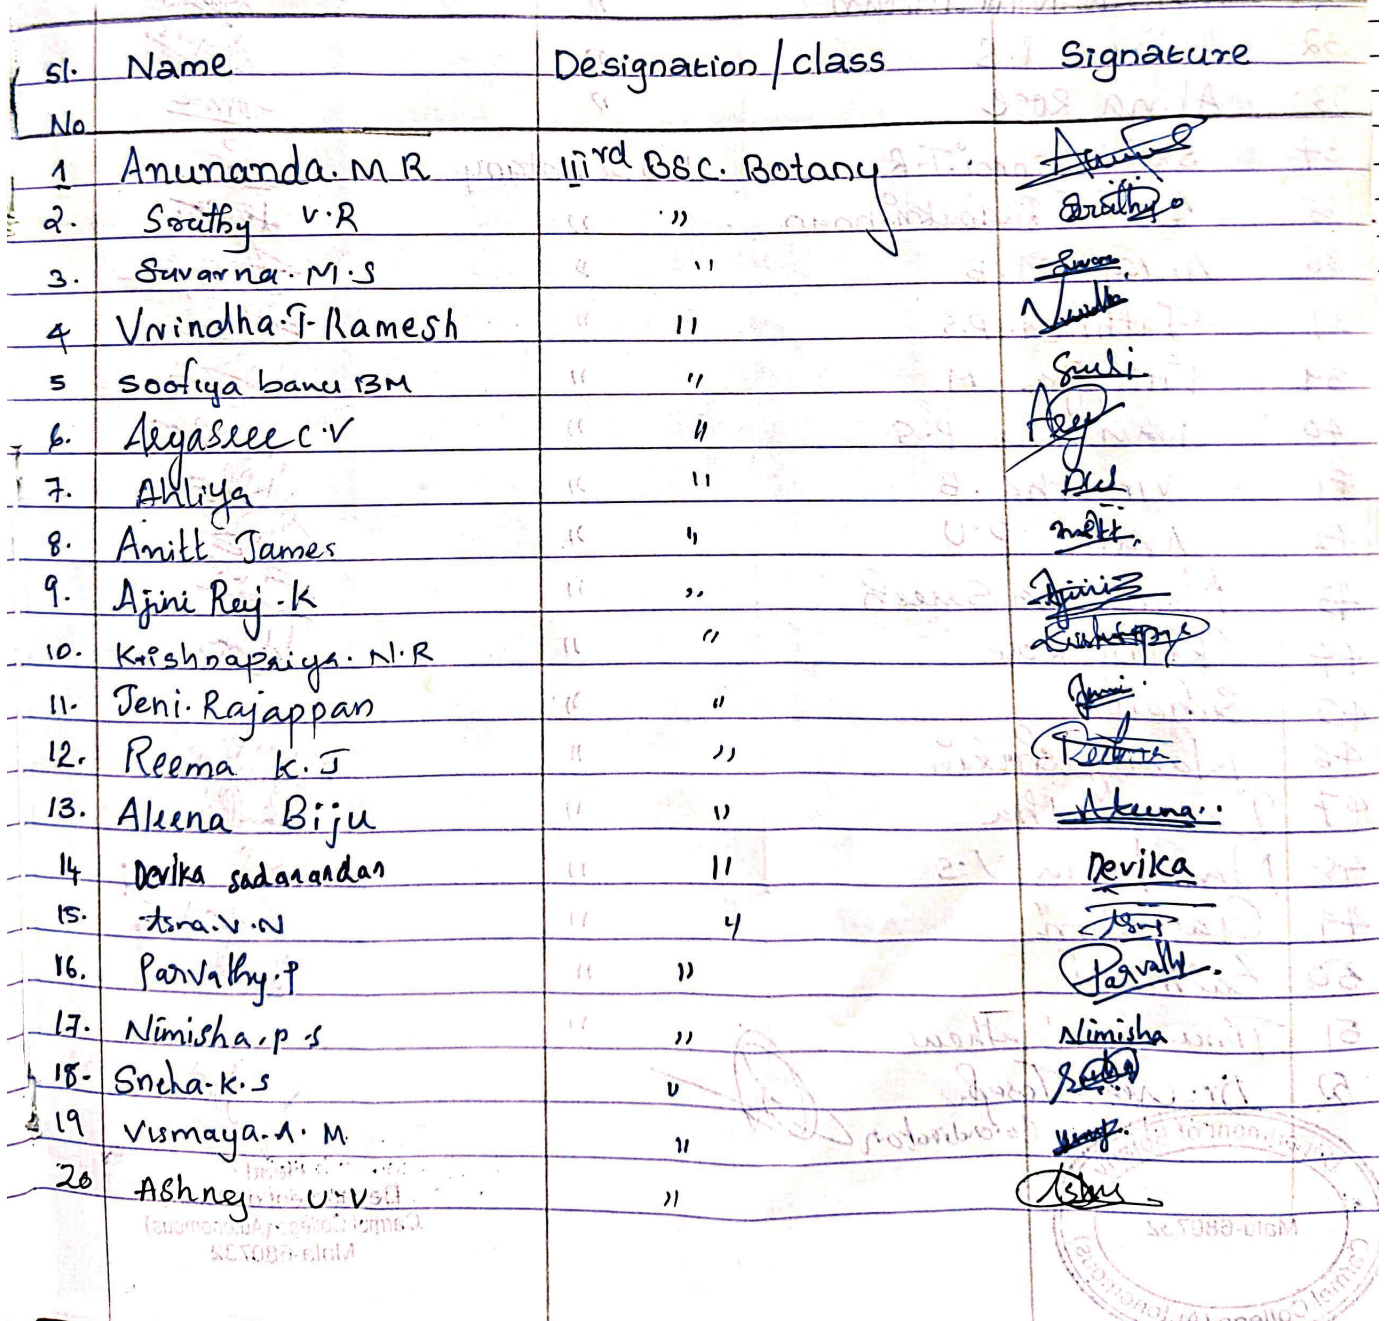 Sl. No Name Designation / class Signature
1 Anunanda. M R IIIrd BSC. Botany
2. Sruthy V.R " Sruthy
3. Suvarna. M.S "
4 Vrindha.T. Ramesh " Vrindha
5 Soofiya banu BM "
6. Aryasree C.V "
7. Ahliya "
8. Anitt James "
9. Ajini Raj .K " Ajini
10. Krishnapriya. N.R "
11. Jeni. Rajappan " Jeni
12. Reema K.J " Reema
13. Aleena Biju " Aleena
14 Devika sadanandan " Devika
15. Asna.V.N " Asna
16. Parvathy.P " Parvathy
17. Nimisha.p.s " Nimisha
18. Sneha.K.S "
19 Vismaya.A.M. "
20 Ashney U.V "
Carmel College (Autonomous)
Mala-680732
Mala-680732